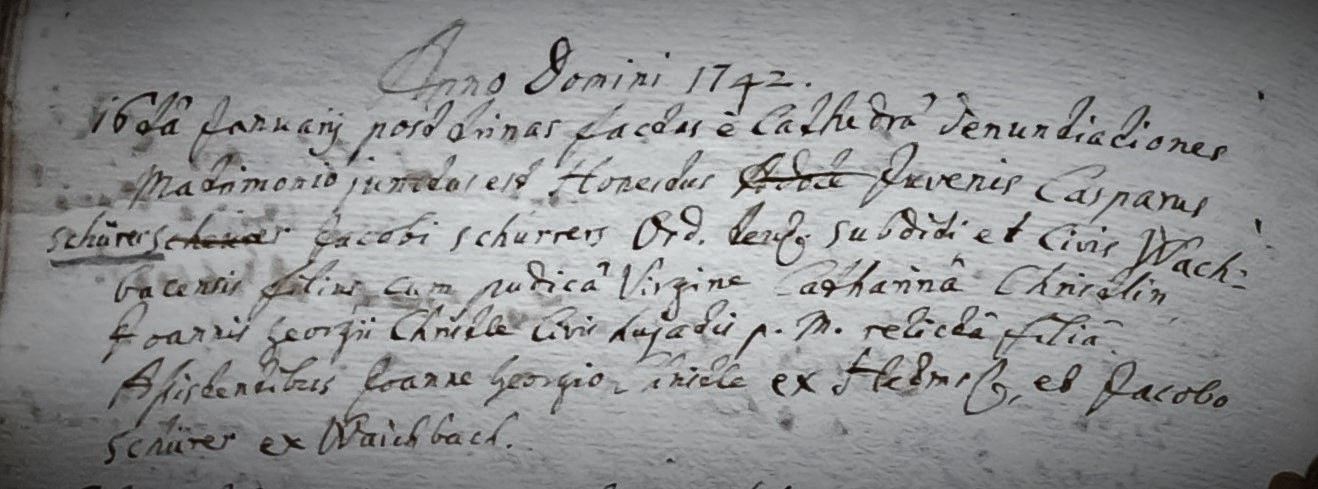 Anno Domini 1742.
16ta Januarij post trinas factas è Cathedrâ denuntiationes
Matrimonio junctus est Honestus Juvenis Casparus
schürer Jacobi schürrers Ord. Teut. subditi et Civis Wach-
bacensis filius cum pudicâ Virgine Catharinâ Christlin,
Joannis Georgii Christle Civis hujatis p. M. relictâ filiâ.
Assistentibus Joanne Georgio Christle ex et Jacobo
schürer ex Waichbach.